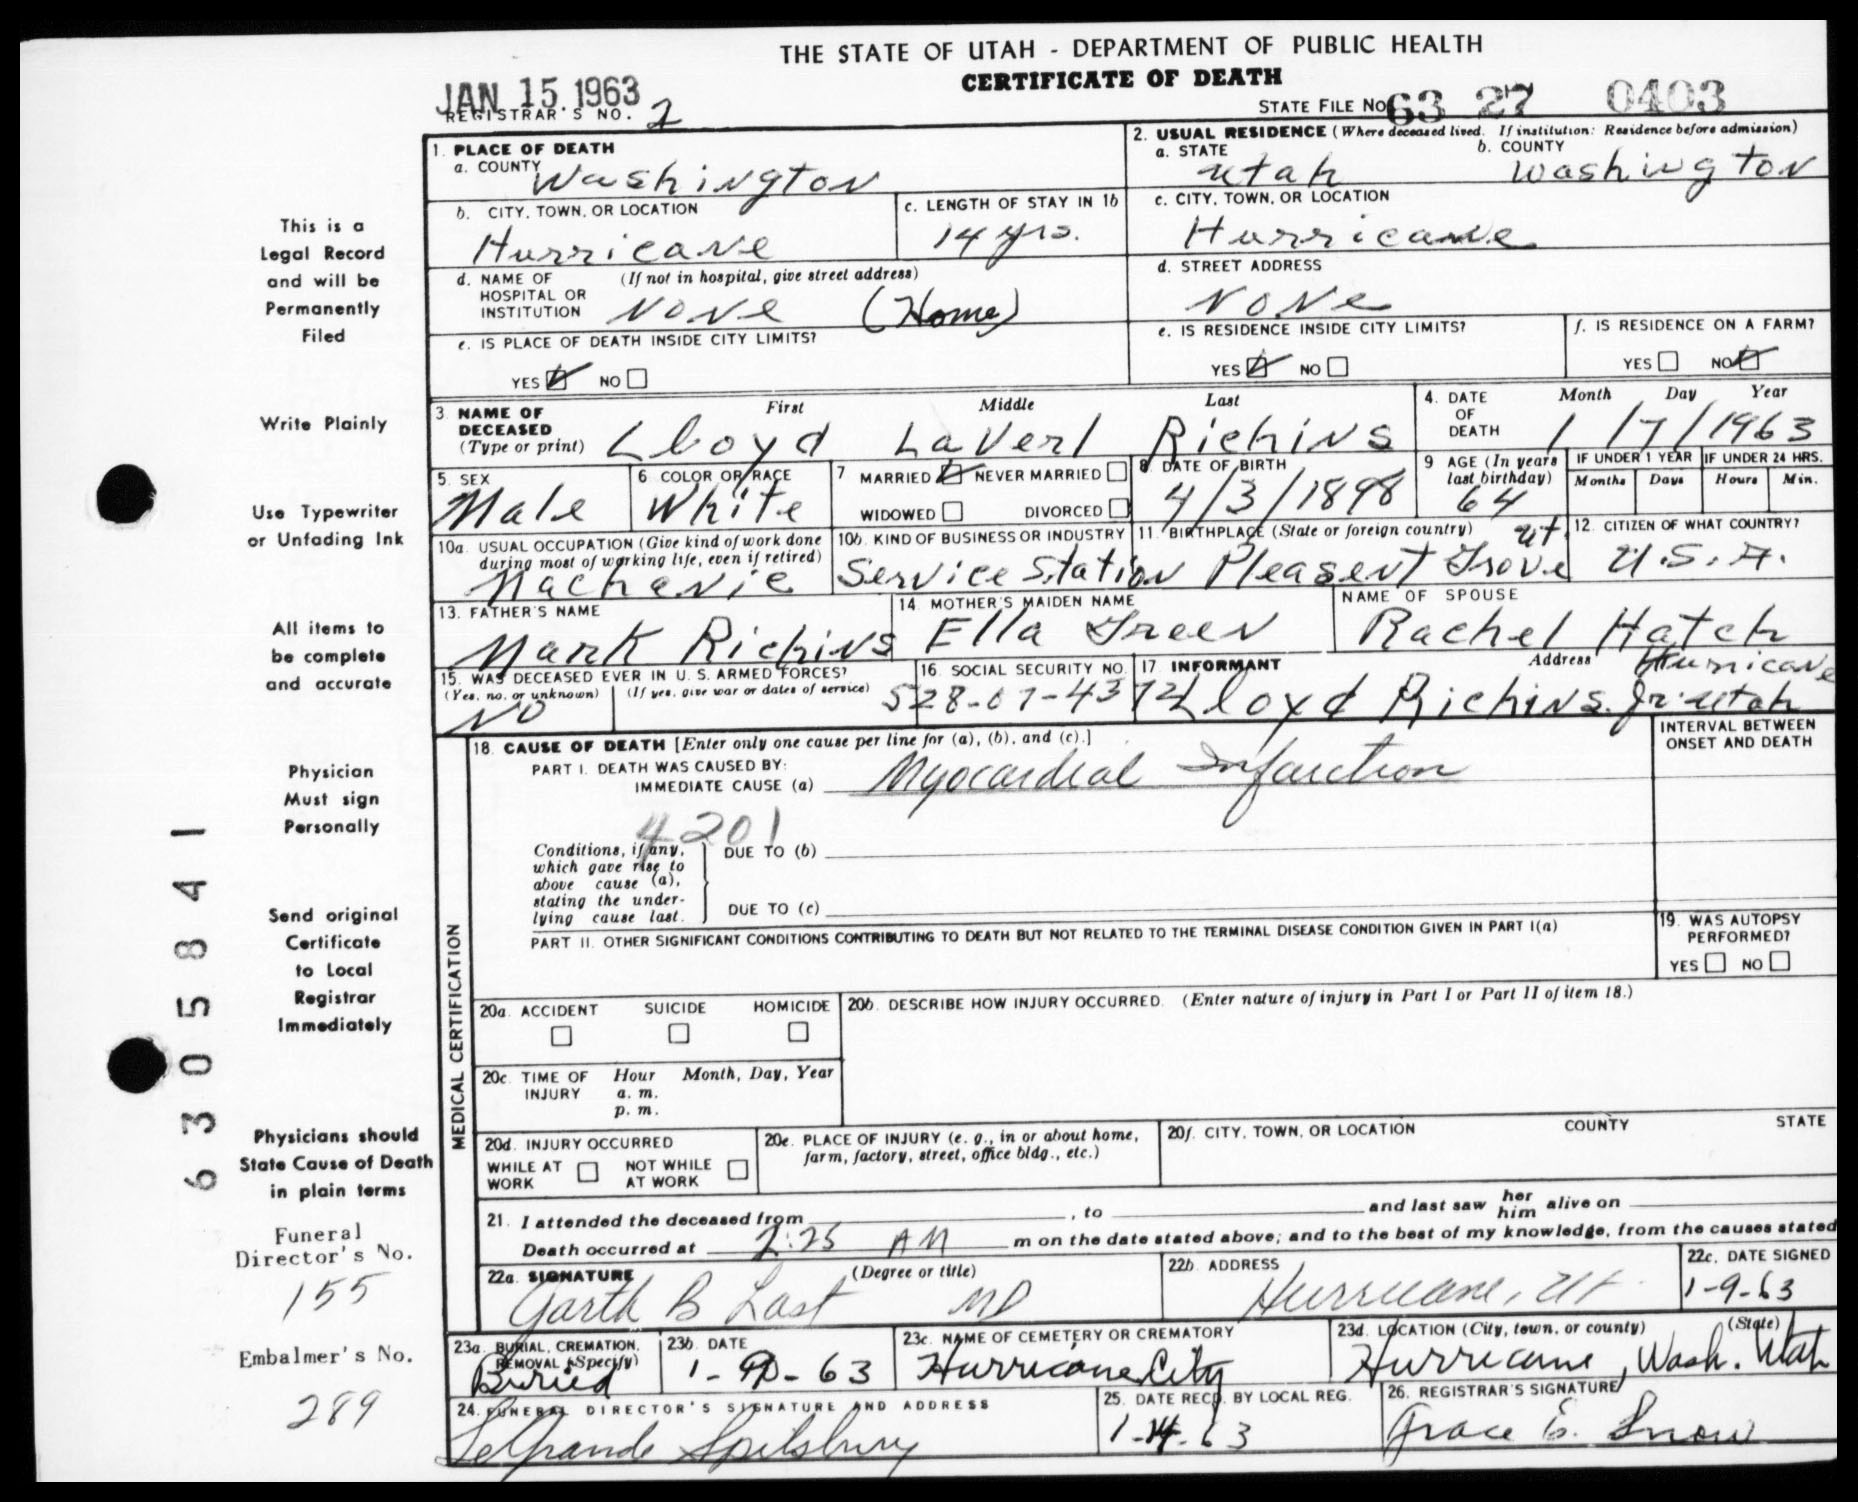 THE STATE OF UTAH - DEPARTMENT OF PUBLIC HEALTH
CERTIFICATE OF DEATH
JAN 15. 1963
REGISTRAR'S NO. 2
STATE FILE NO. 63 27 0403
1. PLACE OF DEATH
a. COUNTY Washington
2. USUAL RESIDENCE (Where deceased lived. If institution: Residence before admission)
a. STATE Utah b. COUNTY Washington
b. CITY, TOWN, OR LOCATION Hurricane
c. LENGTH OF STAY IN 1b 14 yrs.
c. CITY, TOWN, OR LOCATION Hurricane
d. NAME OF HOSPITAL OR INSTITUTION (If not in hospital, give street address) None (Home)
d. STREET ADDRESS None
e. IS PLACE OF DEATH INSIDE CITY LIMITS?
YES NO
e. IS RESIDENCE INSIDE CITY LIMITS?
YES NO
f. IS RESIDENCE ON A FARM?
YES NO
3. NAME OF DECEASED (Type or print)
First Middle Last
Lloyd LaVerl Richins
4. DATE OF DEATH
Month Day Year
1/7/1963
5. SEX Male
6 COLOR OR RACE White
7 MARRIED NEVER MARRIED
WIDOWED DIVORCED
8. DATE OF BIRTH 4/3/1898
9 AGE (In years last birthday) 64
IF UNDER 1 YEAR Months Days
IF UNDER 24 HRS. Hours Min.
10a. USUAL OCCUPATION (Give kind of work done during most of working life, even if retired) Machanic
10b. KIND OF BUSINESS OR INDUSTRY Service Station
11. BIRTHPLACE (State or foreign country) Pleasent Grove Ut.
12. CITIZEN OF WHAT COUNTRY? U.S.A.
13. FATHER'S NAME Mark Richins
14. MOTHER'S MAIDEN NAME Ella Green
NAME OF SPOUSE Rachel Hatch
15. WAS DECEASED EVER IN U. S. ARMED FORCES?
(Yes, no, or unknown) (If yes, give war or dates of service)
No
16. SOCIAL SECURITY NO. 528-07-4372
17 INFORMANT Address
Lloyd Richins. Jr. Hurricane Utah
18. CAUSE OF DEATH [Enter only one cause per line for (a), (b), and (c).]
INTERVAL BETWEEN ONSET AND DEATH
PART I. DEATH WAS CAUSED BY:
IMMEDIATE CAUSE (a) Myocardial Infarction
4201
Conditions, if any, which gave rise to above cause (a), stating the underlying cause last.
DUE TO (b)
DUE TO (c)
PART II. OTHER SIGNIFICANT CONDITIONS CONTRIBUTING TO DEATH BUT NOT RELATED TO THE TERMINAL DISEASE CONDITION GIVEN IN PART I(a)
19. WAS AUTOPSY PERFORMED?
YES NO
MEDICAL CERTIFICATION
20a. ACCIDENT SUICIDE HOMICIDE
20b. DESCRIBE HOW INJURY OCCURRED. (Enter nature of injury in Part I or Part II of item 18.)
20c. TIME OF INJURY Hour Month, Day, Year
a. m.
p. m.
20d. INJURY OCCURRED
WHILE AT WORK NOT WHILE AT WORK
20e. PLACE OF INJURY (e. g., in or about home, farm, factory, street, office bldg., etc.)
20f. CITY, TOWN, OR LOCATION COUNTY STATE
21. I attended the deceased from , to and last saw her him alive on
Death occurred at 2:25 AM m on the date stated above; and to the best of my knowledge, from the causes stated
22a. SIGNATURE (Degree or title)
Garth B Last MD
22b. ADDRESS Hurricane, Ut
22c. DATE SIGNED 1-9-63
23a. BURIAL, CREMATION, REMOVAL (Specify) Buried
23b. DATE 1- -63
23c. NAME OF CEMETERY OR CREMATORY Hurricane City
23d. LOCATION (City, town, or county) (State)
Hurricane, Wash. Utah
24. FUNERAL DIRECTOR'S SIGNATURE AND ADDRESS
LeGrande Spilsbury
25. DATE RECD. BY LOCAL REG. 1-14-63
26. REGISTRAR'S SIGNATURE
Grace E. Snow
This is a
Legal Record
and will be
Permanently
Filed
Write Plainly
Use Typewriter
or Unfading Ink
All items to
be complete
and accurate
Physician
Must sign
Personally
Send original
Certificate
to Local
Registrar
Immediately
Physicians should
State Cause of Death
in plain terms
Funeral
Director's No.
155
Embalmer's No.
289
63 05841